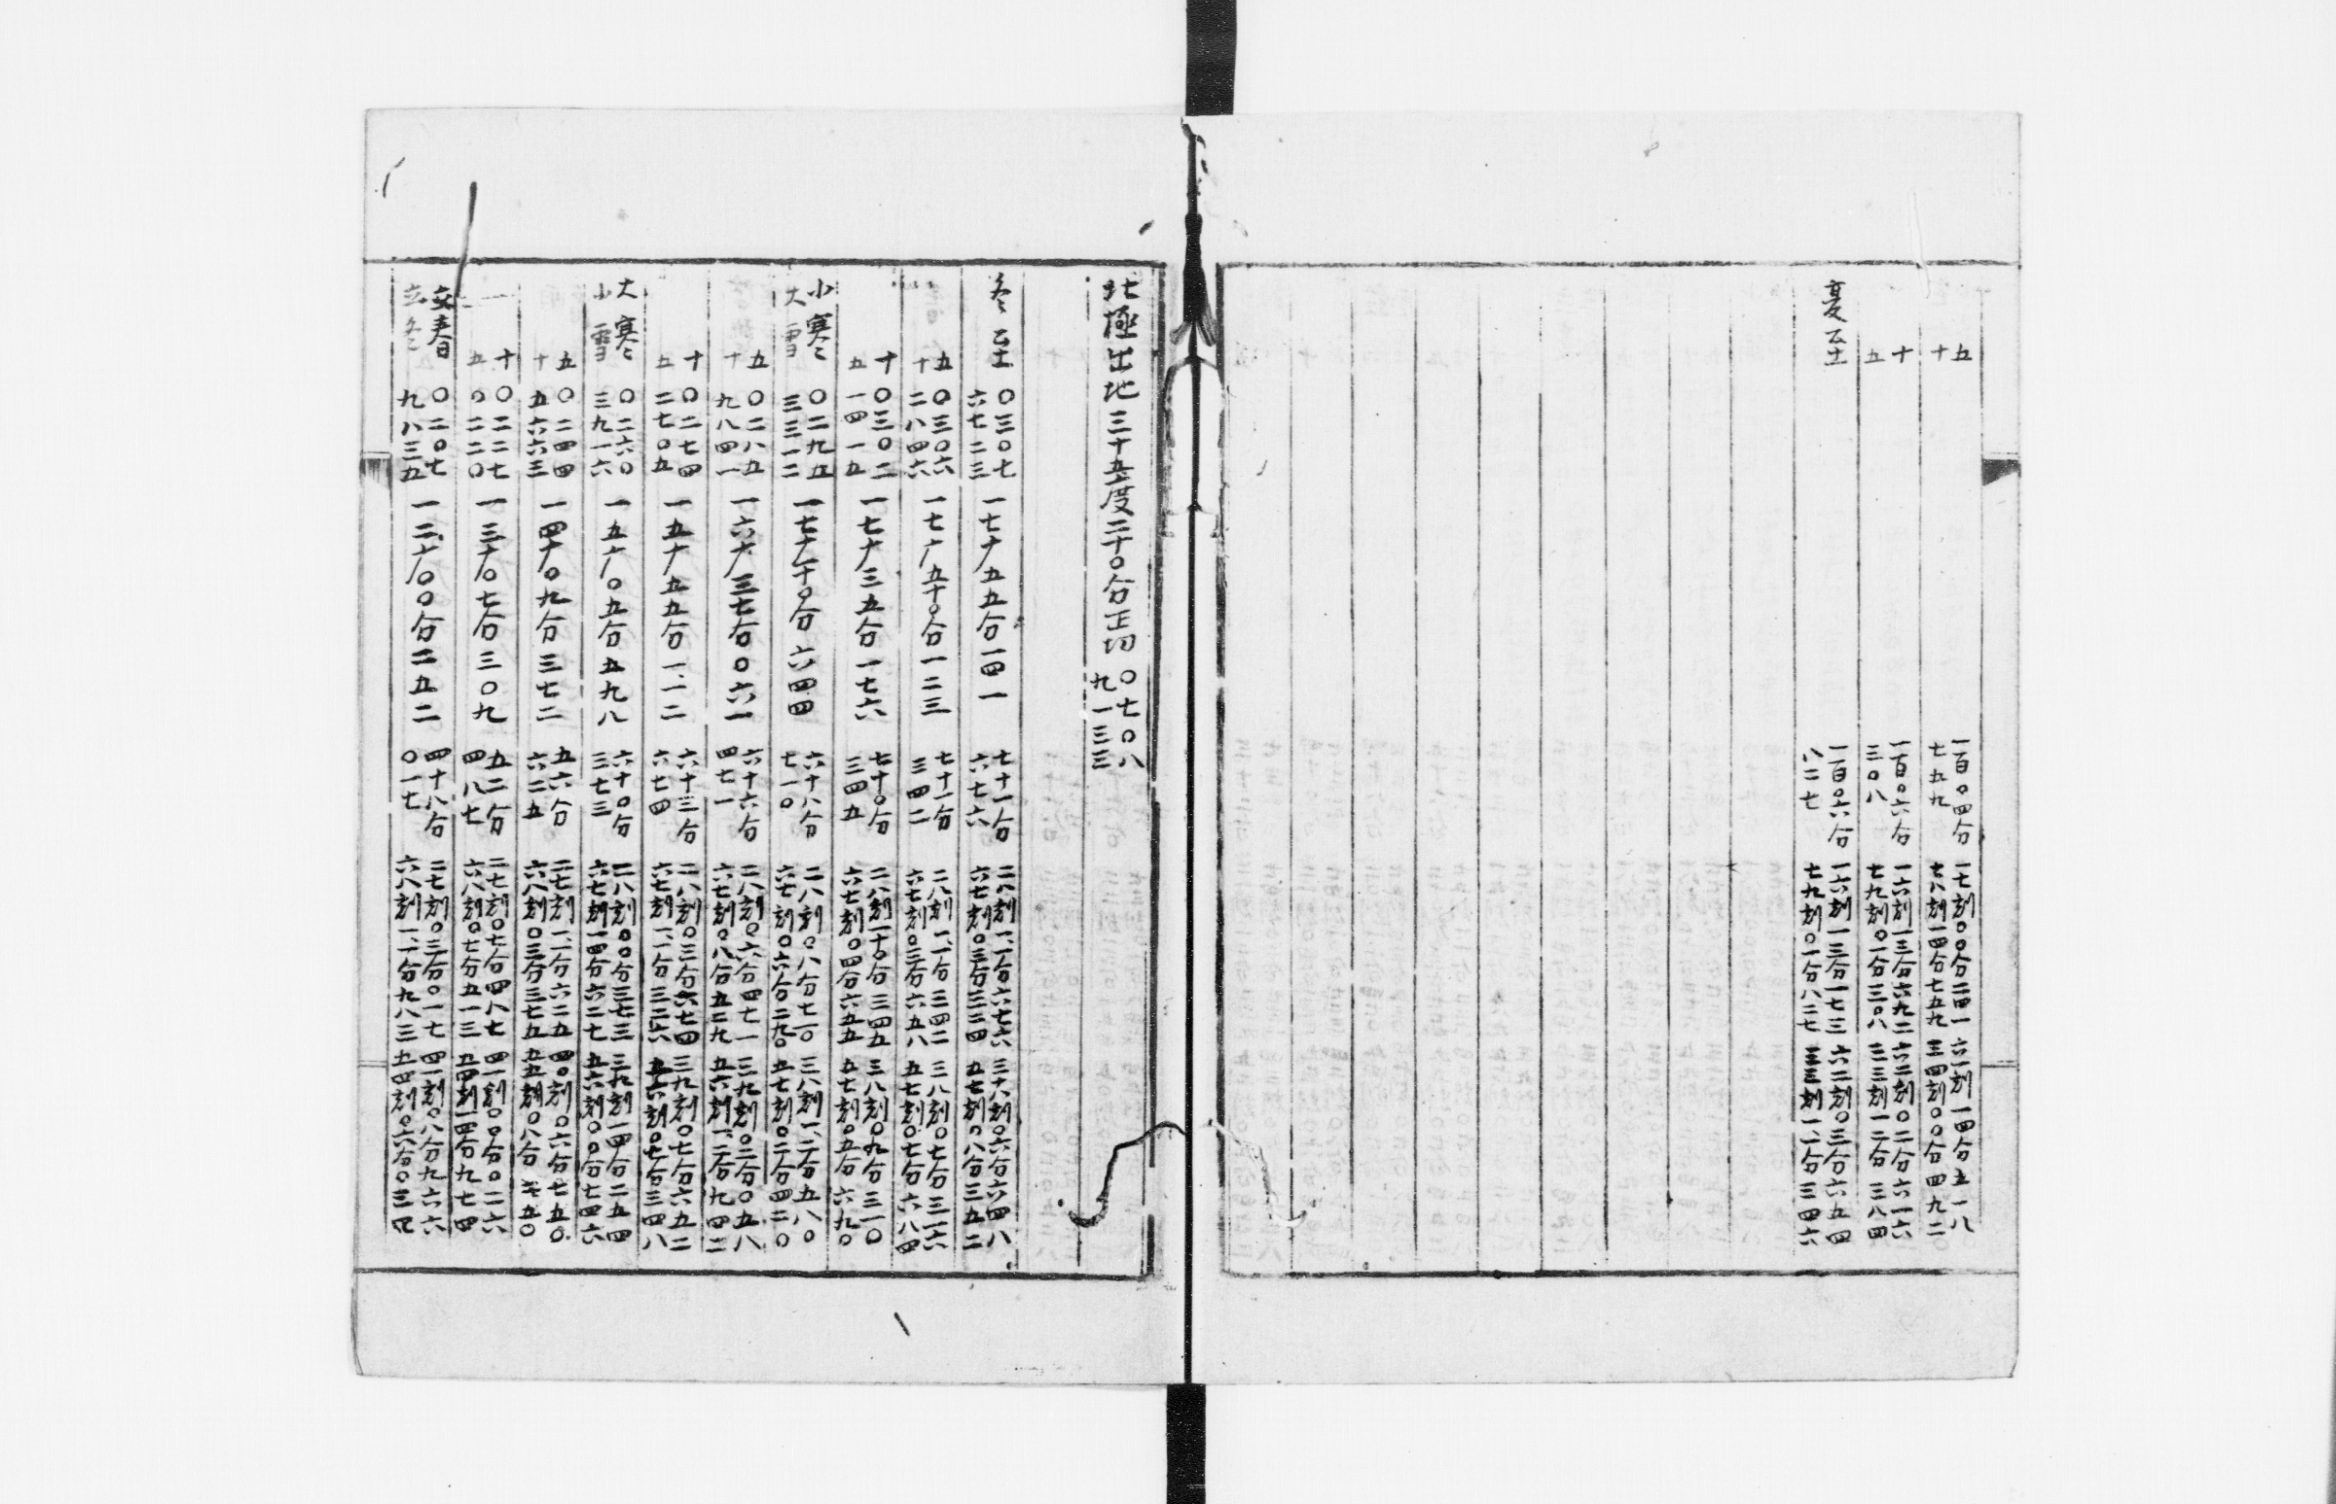 五 一百〇四分 一七刻〇〇分二四一 六一刻一四分五一八
十 七五九 七八刻一四分七五九 三四刻〇〇分四九二
十 一百〇六分 一六刻一三分六九二 六二刻〇二分六一六
五 三〇八 七九刻〇一分三〇八 三三刻一二分三八四
夏至 一百〇六分 一六刻一三分一七三 六二刻〇三分六五四
八二七 七九刻〇一分八二七 三三刻一一分三四六
北極出地三十五度二十〇分正切 〇七〇八
九一三三
冬至 〇三〇七 一七十五五分一四一 七十一分 二八刻一一分六七六 三十八刻〇六分六四八
六七二三 六七六 六七刻〇三分三二四 五七刻〇八分三五二
五 〇三〇六 一七十五十〇分一二三 七十一分 二八刻一一分三四二 三八刻〇七分三一六
十 二八四六 三四二 六七刻〇三分六五八 五七刻〇七分六八四
十 〇三〇二 一七十三五分一七六 七十〇分 二八刻一十〇分三四五 三八刻〇九分三一〇
五 一四一五 三四五 六七刻〇四分六五五 五七刻〇五分六九〇
小寒 〇二九五 一七十一十〇分六四四 六十八分 二八刻〇八分七一〇 三八刻一二分五八〇
大雪 三三一二 七一〇 六七刻〇六分二九〇 五七刻〇二分四二〇
五 〇二八五 一六十三七分〇六一 六十六分 二八刻〇六分四七一 三九刻〇二分〇五八
十 九八四一 四七一 六七刻〇八分五二九 五六刻一二分九四二
十 〇二七四 一五十五五分一一二 六十三分 二八刻〇三分六七四 三九刻〇七分六五二
五 二七〇五 六七四 六七刻一一分三二六 五六刻〇七分三四八
大寒 〇二六〇 一五十〇五分五九八 六十〇分 二八刻〇〇分三七三 三九刻一四分二五四
小雪 三九一六 三七三 六七刻一四分六二七 五六刻〇〇分七四六
五 〇二四四 一四十〇九分三七二 五六分 二七刻一一分六二五 四〇刻〇六分七五〇
十 五六六三 六二五 六八刻〇三分三七五 五五刻〇八分二五〇
十 〇二二七 一三十〇七分三〇九 五二分 二七刻〇七分四八七 四一刻〇〇分〇二六
五 〇二二〇 四八七 六八刻〇七分五一三 五四刻一四分九七四
立春 〇二〇七 一二十〇〇分二五二 四十八分 二七刻〇三分〇一七 四一刻〇八分九六六
立冬 九八三五 〇一七 六八刻一一分九八三 五四刻〇六分〇三四